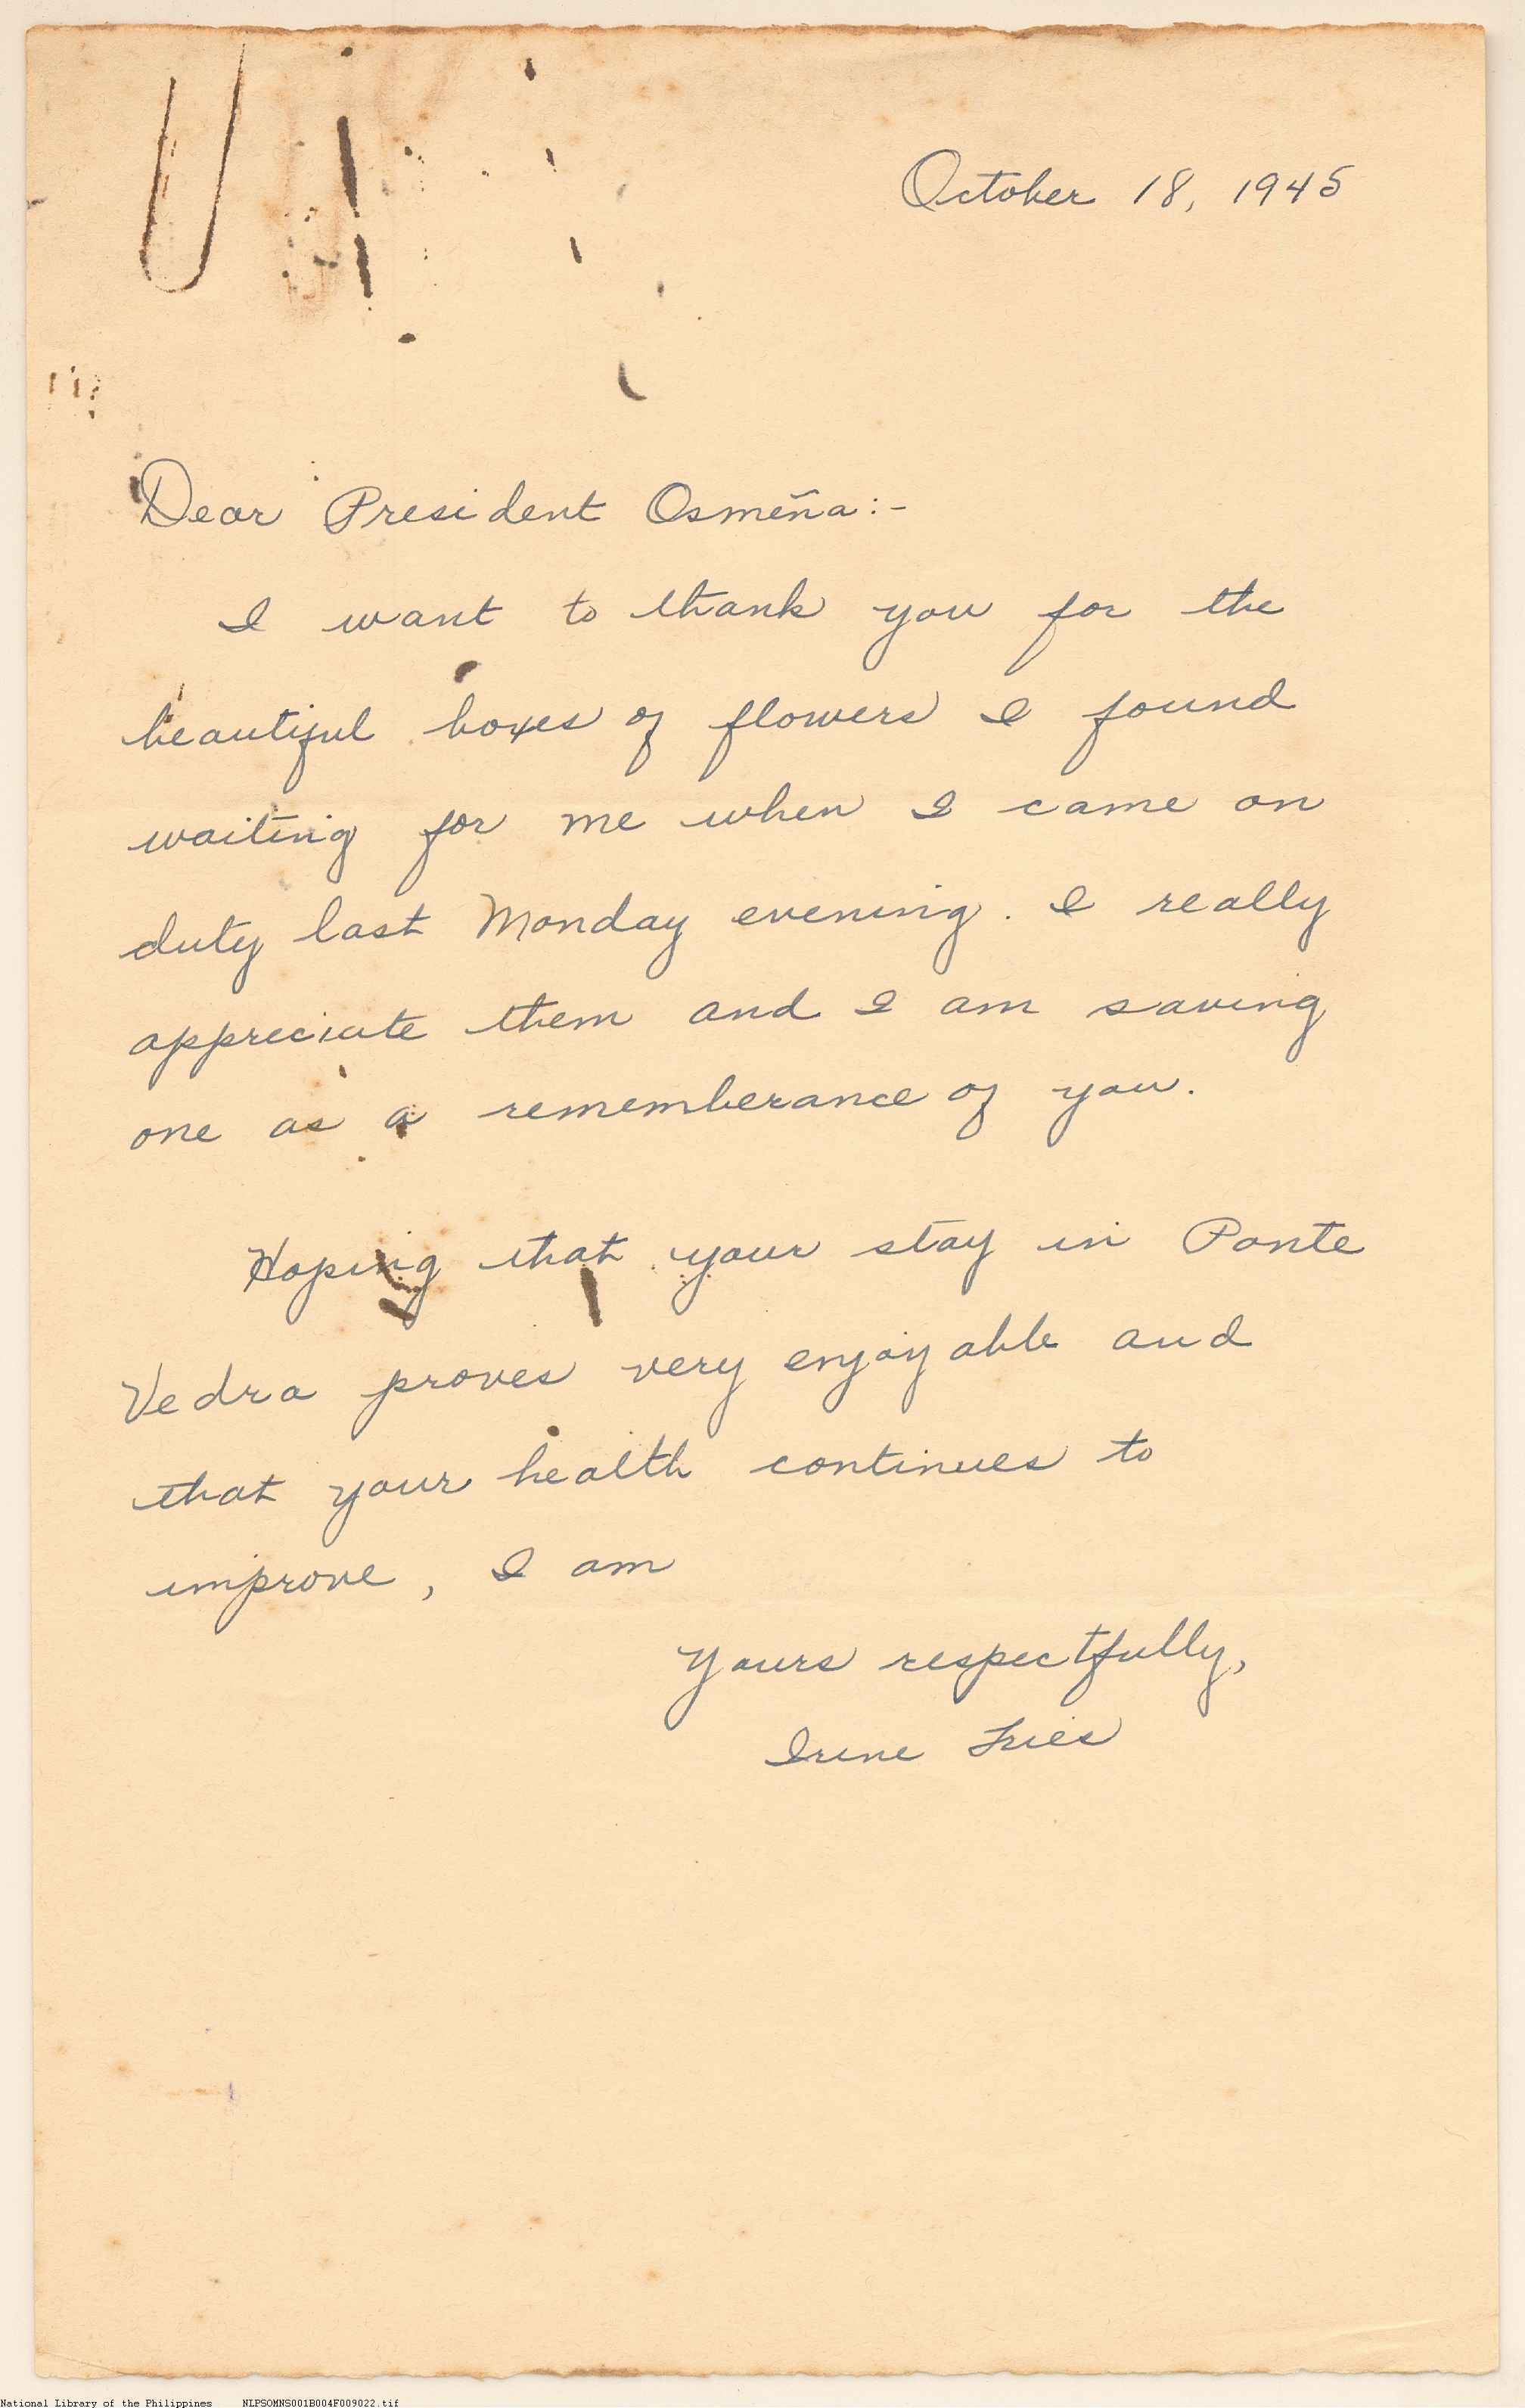 October 18, 1945
Dear President Osmeña:-
I want to thank you for the
beautiful boxes of flowers I found
waiting for me when I came on
duty last Monday evening. I really
appreciate them and I am saving
one as a rememberance of you.
Hoping that your stay in Ponte
Vedra proves very enjoyable and
that your health continues to
improve, I am
Yours respectfully,
Irene Fries
National Library of the Philippines NLPSOMNS001B004F009022.tif